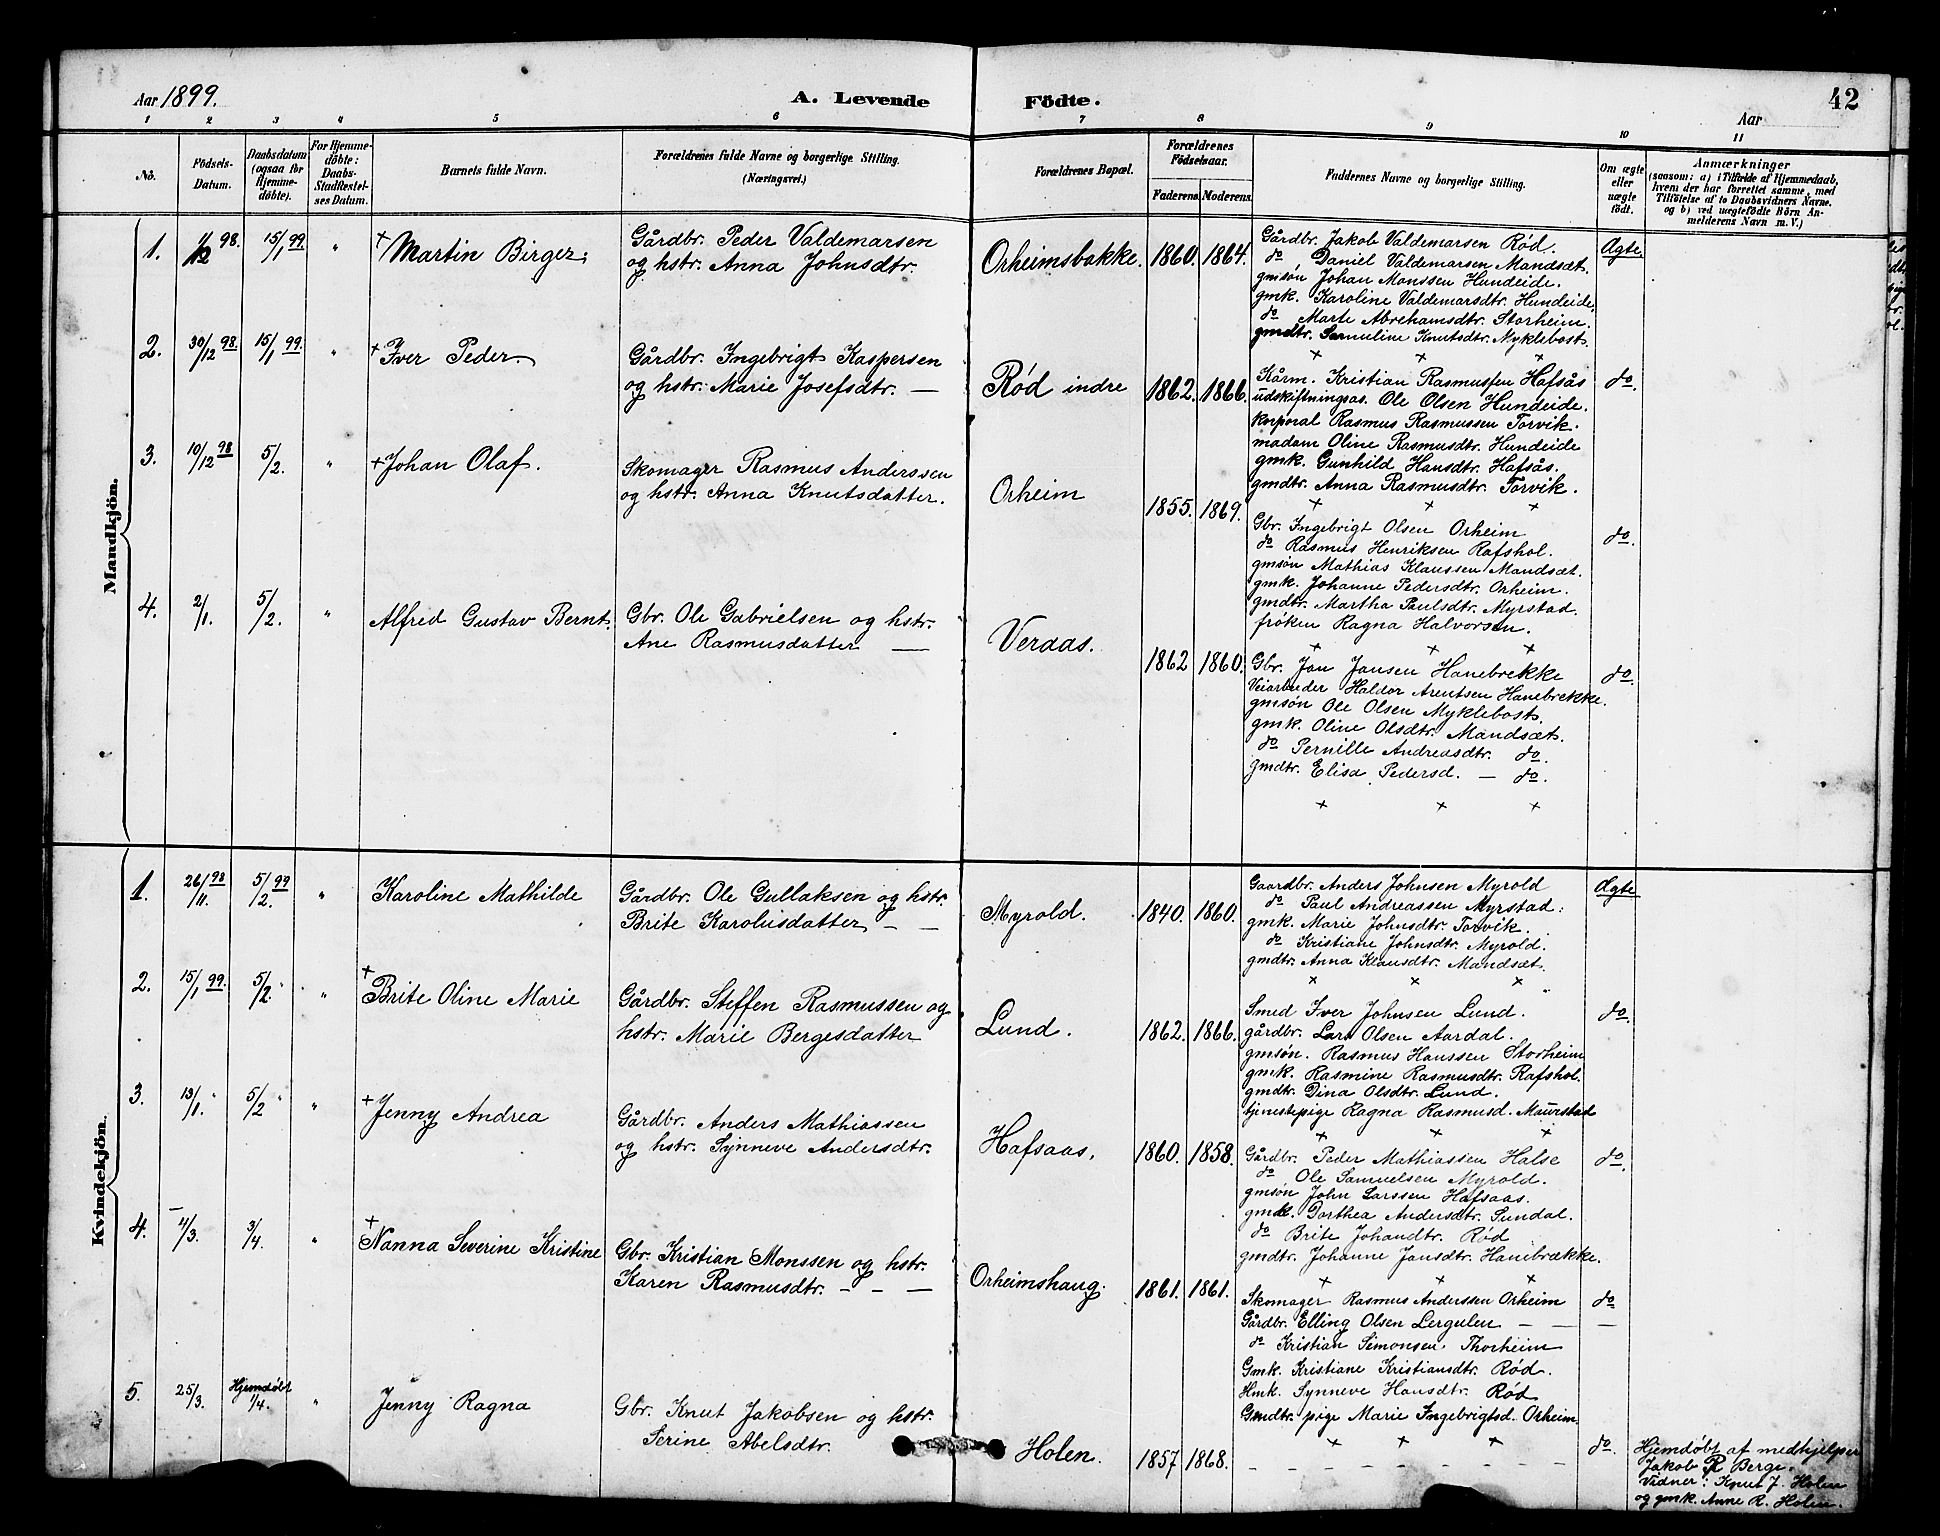 Aar 1899.
A. Levende
Födte.
Aar
42
1 2 3 4 5 6 7 8 9 10 11
No.
Födsels-
Datum.
Daabsdatum
(ogsaa for
Hjemme-
döbte).
For Hjemme-
döbte:
Daabs-
Stadfæstel-
ses Datum.
Barnets fulde Navn.
Forældrenes fulde Navne og borgerlige Stilling.
(Næringsvei.)
Forældrenes Bopæl.
Forældrenes
Födselsaar.
Faderens. Moderens.
Faddernes Navne og borgerlige Stilling.
Om ægte
eller
uægte
födt.
Anmærkninger
(saasom: a) i Tilfælde af Hjemmedaab,
hvem der har forrettet samme, med
Tilföielse af to Daabsvidners Navne,
og b) ved uægtefödte Börn An-
melderens Navn m. V.)
Mandkjön.
1. 98. 15/1 99. " + Martin Birger.
Gårdbr. Peder Valdemarsen
og hstr. Anna Johnsdtr.
Orheimsbakke. 1860. 1864.
Gårdbr. Jakob Valdemarsen Rød.
do Daniel Valdemarsen Mandsæt.
gmsøn Johan Monssen Hundeide.
gmk. Karoline Valdemarsdtr. Hundeide.
do Marte Abrehamsdtr. Storheim.
gmdtr. Samuline Knutsdtr. Myklebost.
Ægte
+ + +
2. 30/12 98. 15/1 99. " + Iver Peder
Gårdbr. Ingebrigt Kaspersen
og hstr. Marie Josefsdtr. —
Rød indre 1862. 1866.
Kårm. Kristian Rasmussen Hafsås
udskiftningsas. Ole Olsen Hundeide.
korporal Rasmus Rasmussen Torvik.
madam Oline Rasmusdtr. Hundeide
gmk. Gunhild Hansdtr. Hafsås.
gmdtr. Anna Rasmusdtr. Torvik.
do.
+ + +
3. 10/12 98 5/2. " + Johan Olaf.
Skomager Rasmus Anderssen
og hstr. Anna Knutsdatter.
Orheim 1855. 1869.
Gbr. Ingebrigt Olsen Orheim
do Rasmus Henriksen Rafshol.
gmsøn Mathias Klaussen Mandsæt.
gmk. Johanne Pedersdtr. Orheim.
gmdtr. Martha Paulsdtr. Myrstad.
frøken Ragna Halvorsen.
do.
+ + +
4. 2/1. 5/2. " Alfred Gustav Bernt.
Gbr. Ole Gabrielsen og hstr.
Ane Rasmusdatter —
Veraas. 1862 1860.
Gbr. Jan Jansen Hanebrekke
Veiarbeider Haldor Arentsen Hanebrekke.
gmsøn Ole Olsen Myklebost.
gmk. Oline Olsdtr. Mandsæt.
do Pernille Andreasdtr. do.
gmdtr. Elisa Pedersd. — do.
do.
+ + +
Kvindekjön.
1. 26/11. 98 5/2. 99 " Karoline Mathilde
Gårdbr. Ole Gullaksen og hstr.
Brite Karolusdatter — —
Myrold. 1840. 1860.
Gaardbr. Anders Johnsen Myrold
do Paul Andreassen Myrstad.
gmk. Marie Johnsdtr. Torvik.
do Kristiane Johnsdtr. Myrold.
gmdtr. Anna Klausdtr. Mandsæt.
Ægte
+ + +
2. 15/1 99. 5/2. " " + Brite Oline Marie
Gårdbr. Steffen Rasmussen og
hstr. Marie Bergesdatter
Lund. 1862. 1866.
Smed Iver Johnsen Lund.
gårdbr. Lars Olsen Aardal.
gmsøn. Rasmus Hanssen Storheim
gmk. Rasmine Rasmusdtr. Rafshol.
gmdtr. Dina Olsdtr. Lund.
tjenestepige Ragna Rasmusd. Maurstad
do.
+ + +
3. 13/1. " 5/2 " " + Jenny Andrea
Gårdbr. Anders Mathiassen
og hstr. Synneve Andersdtr.
Hafsaas. 1860. 1858.
Gårdbr. Peder Mathiassen Halse
do Ole Samuelsen Myrold.
gmsøn John Larssen Hafsaas.
gmk. Dorthea Andersdtr. Sundal.
do Brite Johandtr. Rød
gmdtr. Johanne Jansdtr. Hanebrække.
do.
+ + +
4. 4/3. 3/4. " + Nanna Severine Kristine
Gbr. Kristian Monssen og hstr.
Karen Rasmusdtr. — — —
Orheimshaug. 1861. 1861.
Skomager Rasmus Anderssen Orheim
Gårdbr. Elling Olsen Lergulen — — —
do Kristian Simonsen Thorheim
Gmk. Kristiane Kristiansdtr. Rød.
Hmk. Synneve Hansdtr. Rød
Gmdtr. pige Marie Ingebrigtsd. Orheim
do
+ + +
5. 25/3. Hjemdøbt 1/4. " Jenny Ragna
Gbr. Knut Jakobsen og hstr.
Serine Abelsdtr.
Holen. 1857 1868.
do.
Hjemdøbt af medhjelper
Jakob R Berge.
Vidner: Knut J. Holen
og gmk. Anne R. Holen.